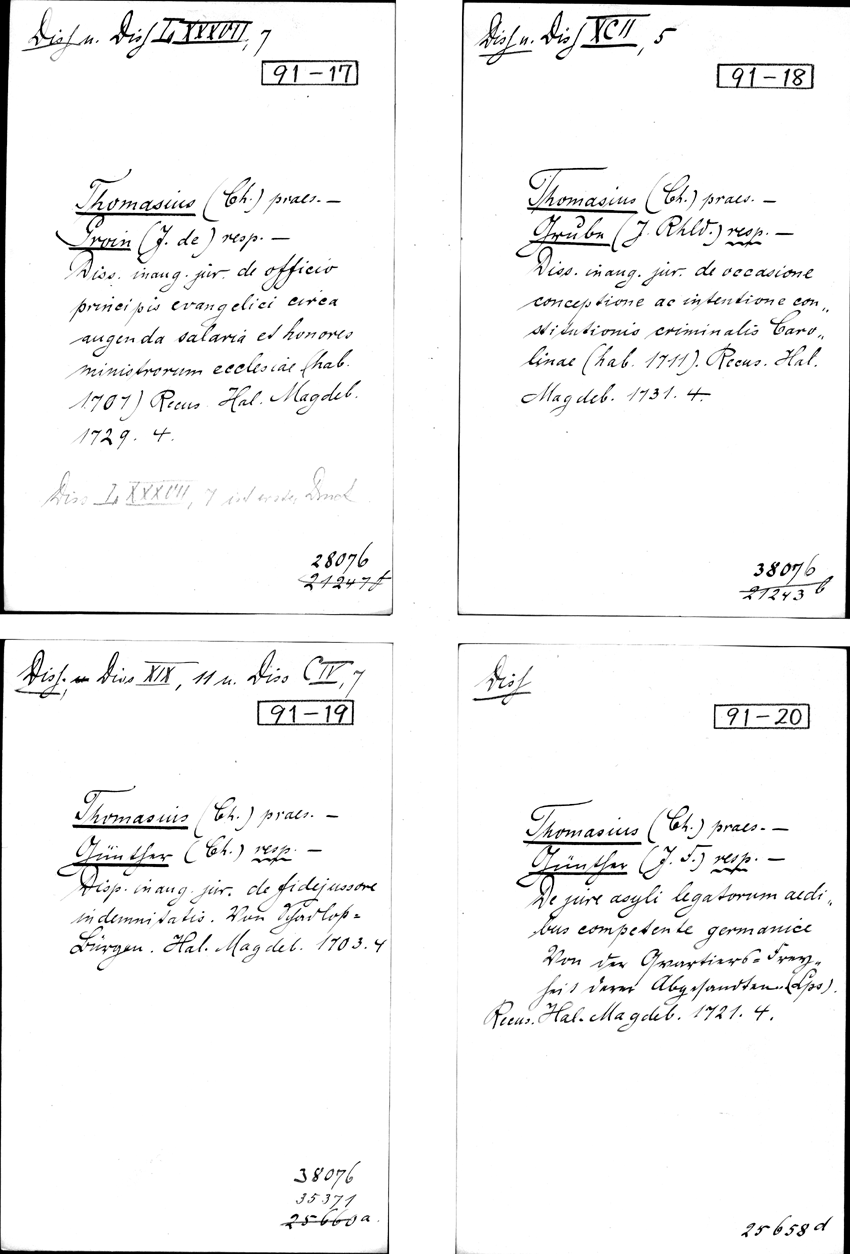 Diss u. Diss LXXXVII, 7
91-17
Thomasius (Ch.) praes. —
Groin (J. de) resp. —
Diss. inaug. jur. de officio
principis evangelici circa
augenda salaria et honores
ministrorum ecclesiae (hab.
1707) Recus. Hal. Magdeb.
1729. 4.
Diss LXXXVII, 7 ist erster Druck
28076
21247 f
Diss u. Diss XCII, 5
91-18
Thomasius (Ch.) praes. —
Grube (J. Rhld.) resp. —
Diss. inaug. jur. de occasione
conceptione ac intentione con„
stitutionis criminalis Caro„
linae (hab. 1711). Recus. Hal.
Magdeb. 1731. 4.
38076
21243 b
Diss; u Diss XIX, 11 u. Diss CIV, 7
91-19
Thomasius (Ch.) praes. —
Günther (Ch.) resp. —
Disp. inaug. jur. de fidejussore
indemnitatis. Von Schadloß=
Bürgen. Hal. Magdeb. 1703. 4
38076
35371
25660 a.
Diss
91-20
Thomasius (Ch.) praes. —
Günther (J. F.) resp. —
De jure asyli legatorum aedi„
bus competente germanice
Von der Quartiers=Frey„
heit derer Abgesandten. (Lps).
Recus. Hal. Magdeb. 1721. 4.
25658 d